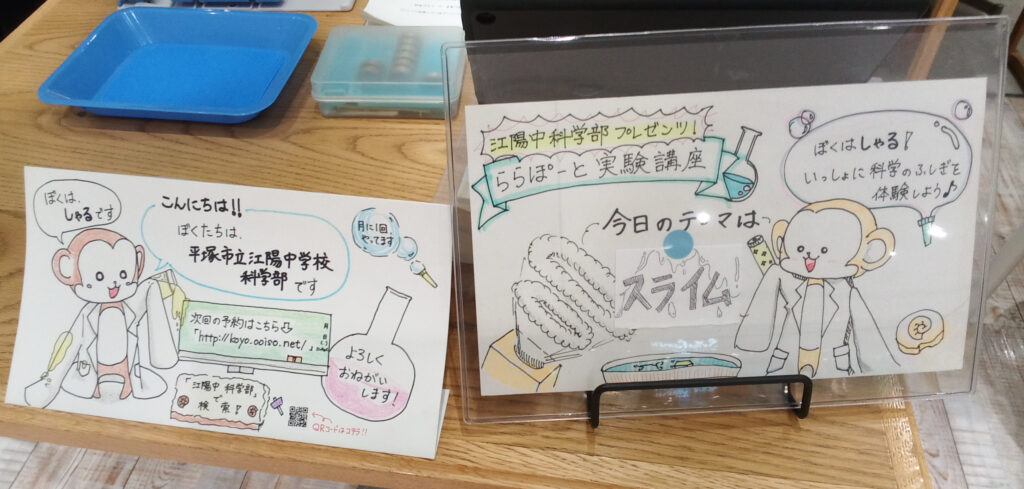 ぼくは、
しゃるです
こんにちは!!
ぼくたちは、
平塚市立江陽中学校
科学部です
月に1回
やってます
次回の予約はこちら
「http://koyo.ooiso.net/」
よろしく
おねがい
します!
「江陽中 科学部」
で
検索!
QRコードはコチラ!!
江陽中科学部 プレゼンツ!
ららぽーと 実験講座
今日のテーマは
スライム
ぼくはしゃる!
いっしょに科学のふしぎを
体験しよう♪